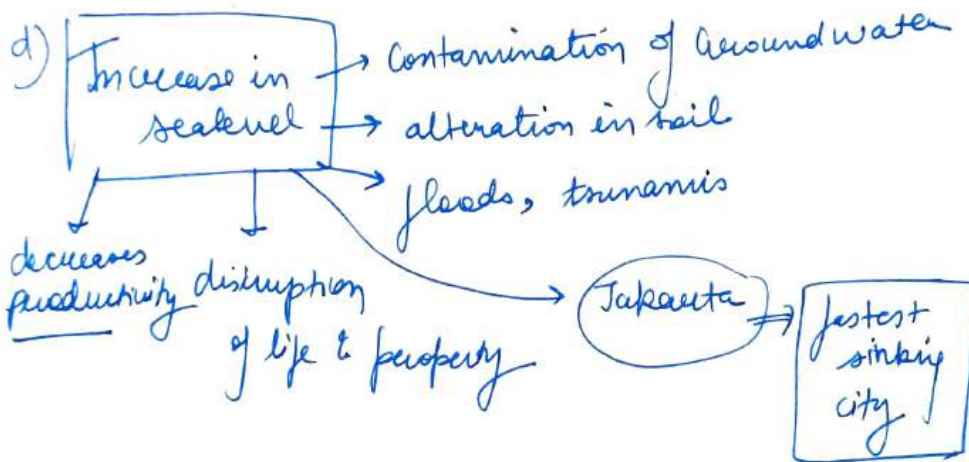 d) Increase in → Contamination of Groundwater
sealevel → alteration in soil
floods, tsunamis
decreases
productivity disruption
of life & property
Jakarta ⇒ fastest
sinking
city